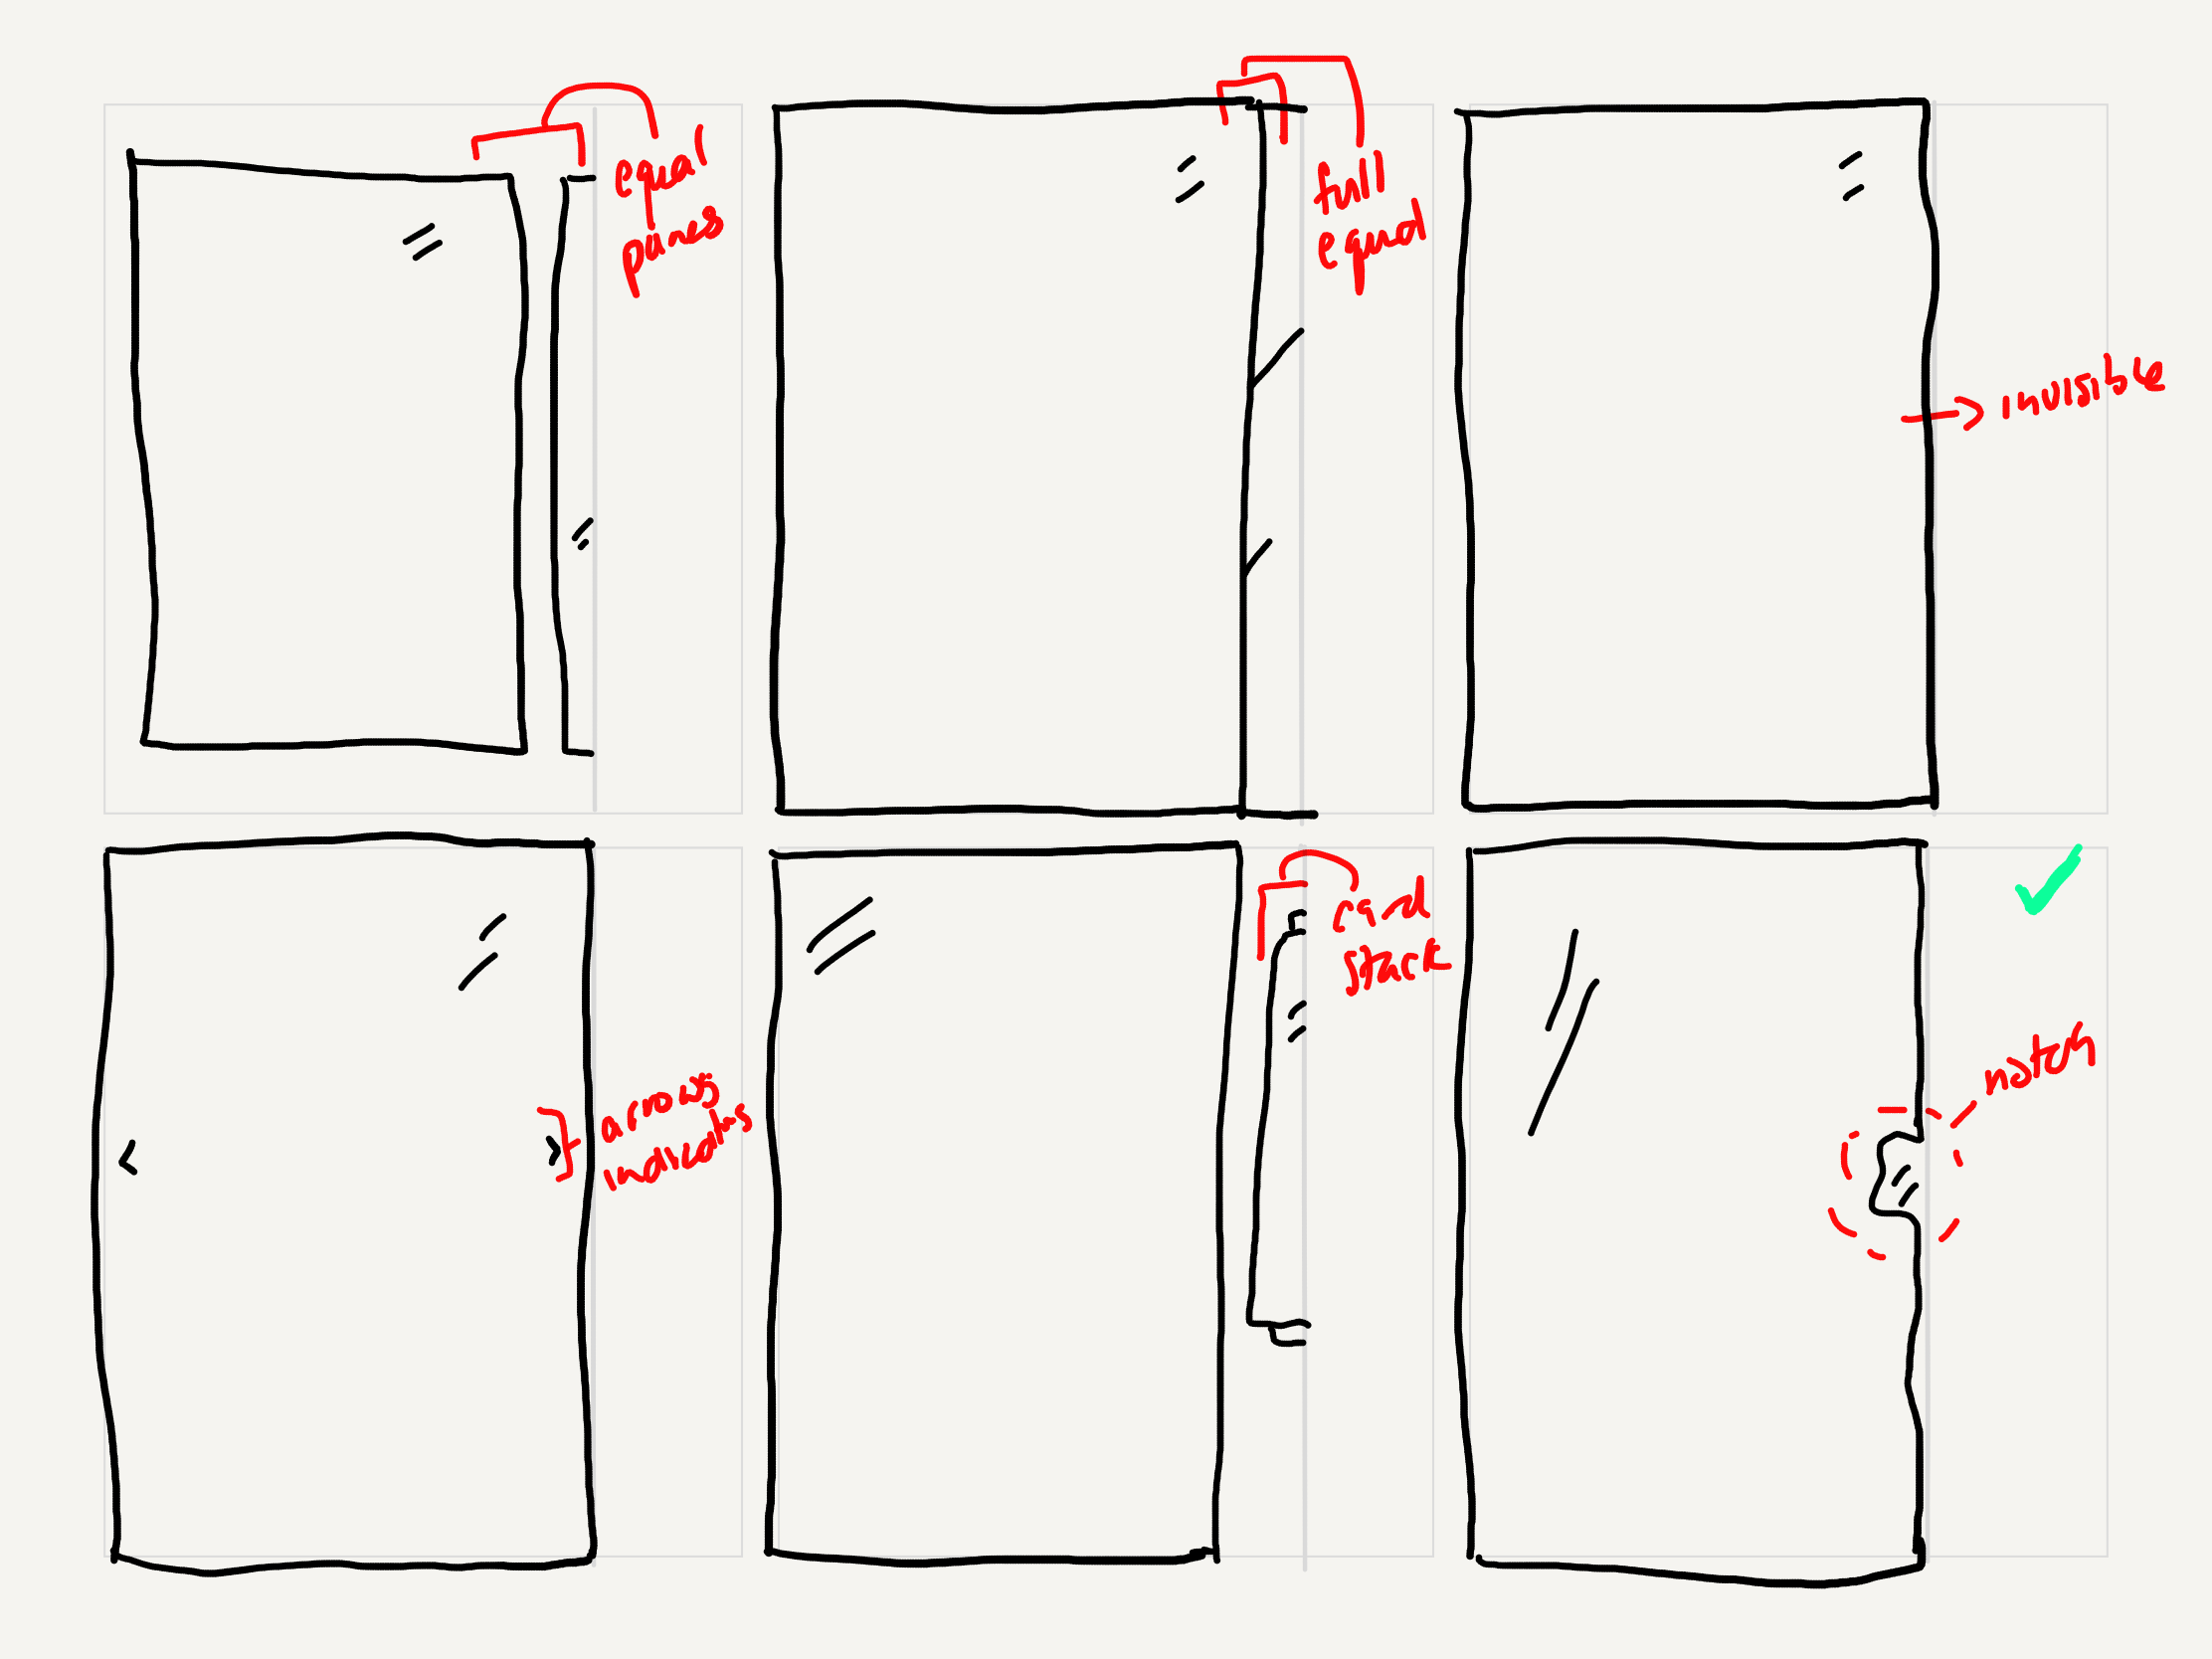 equal
panes
full
equal
invisible
arrows
indicators
card
stack
notch